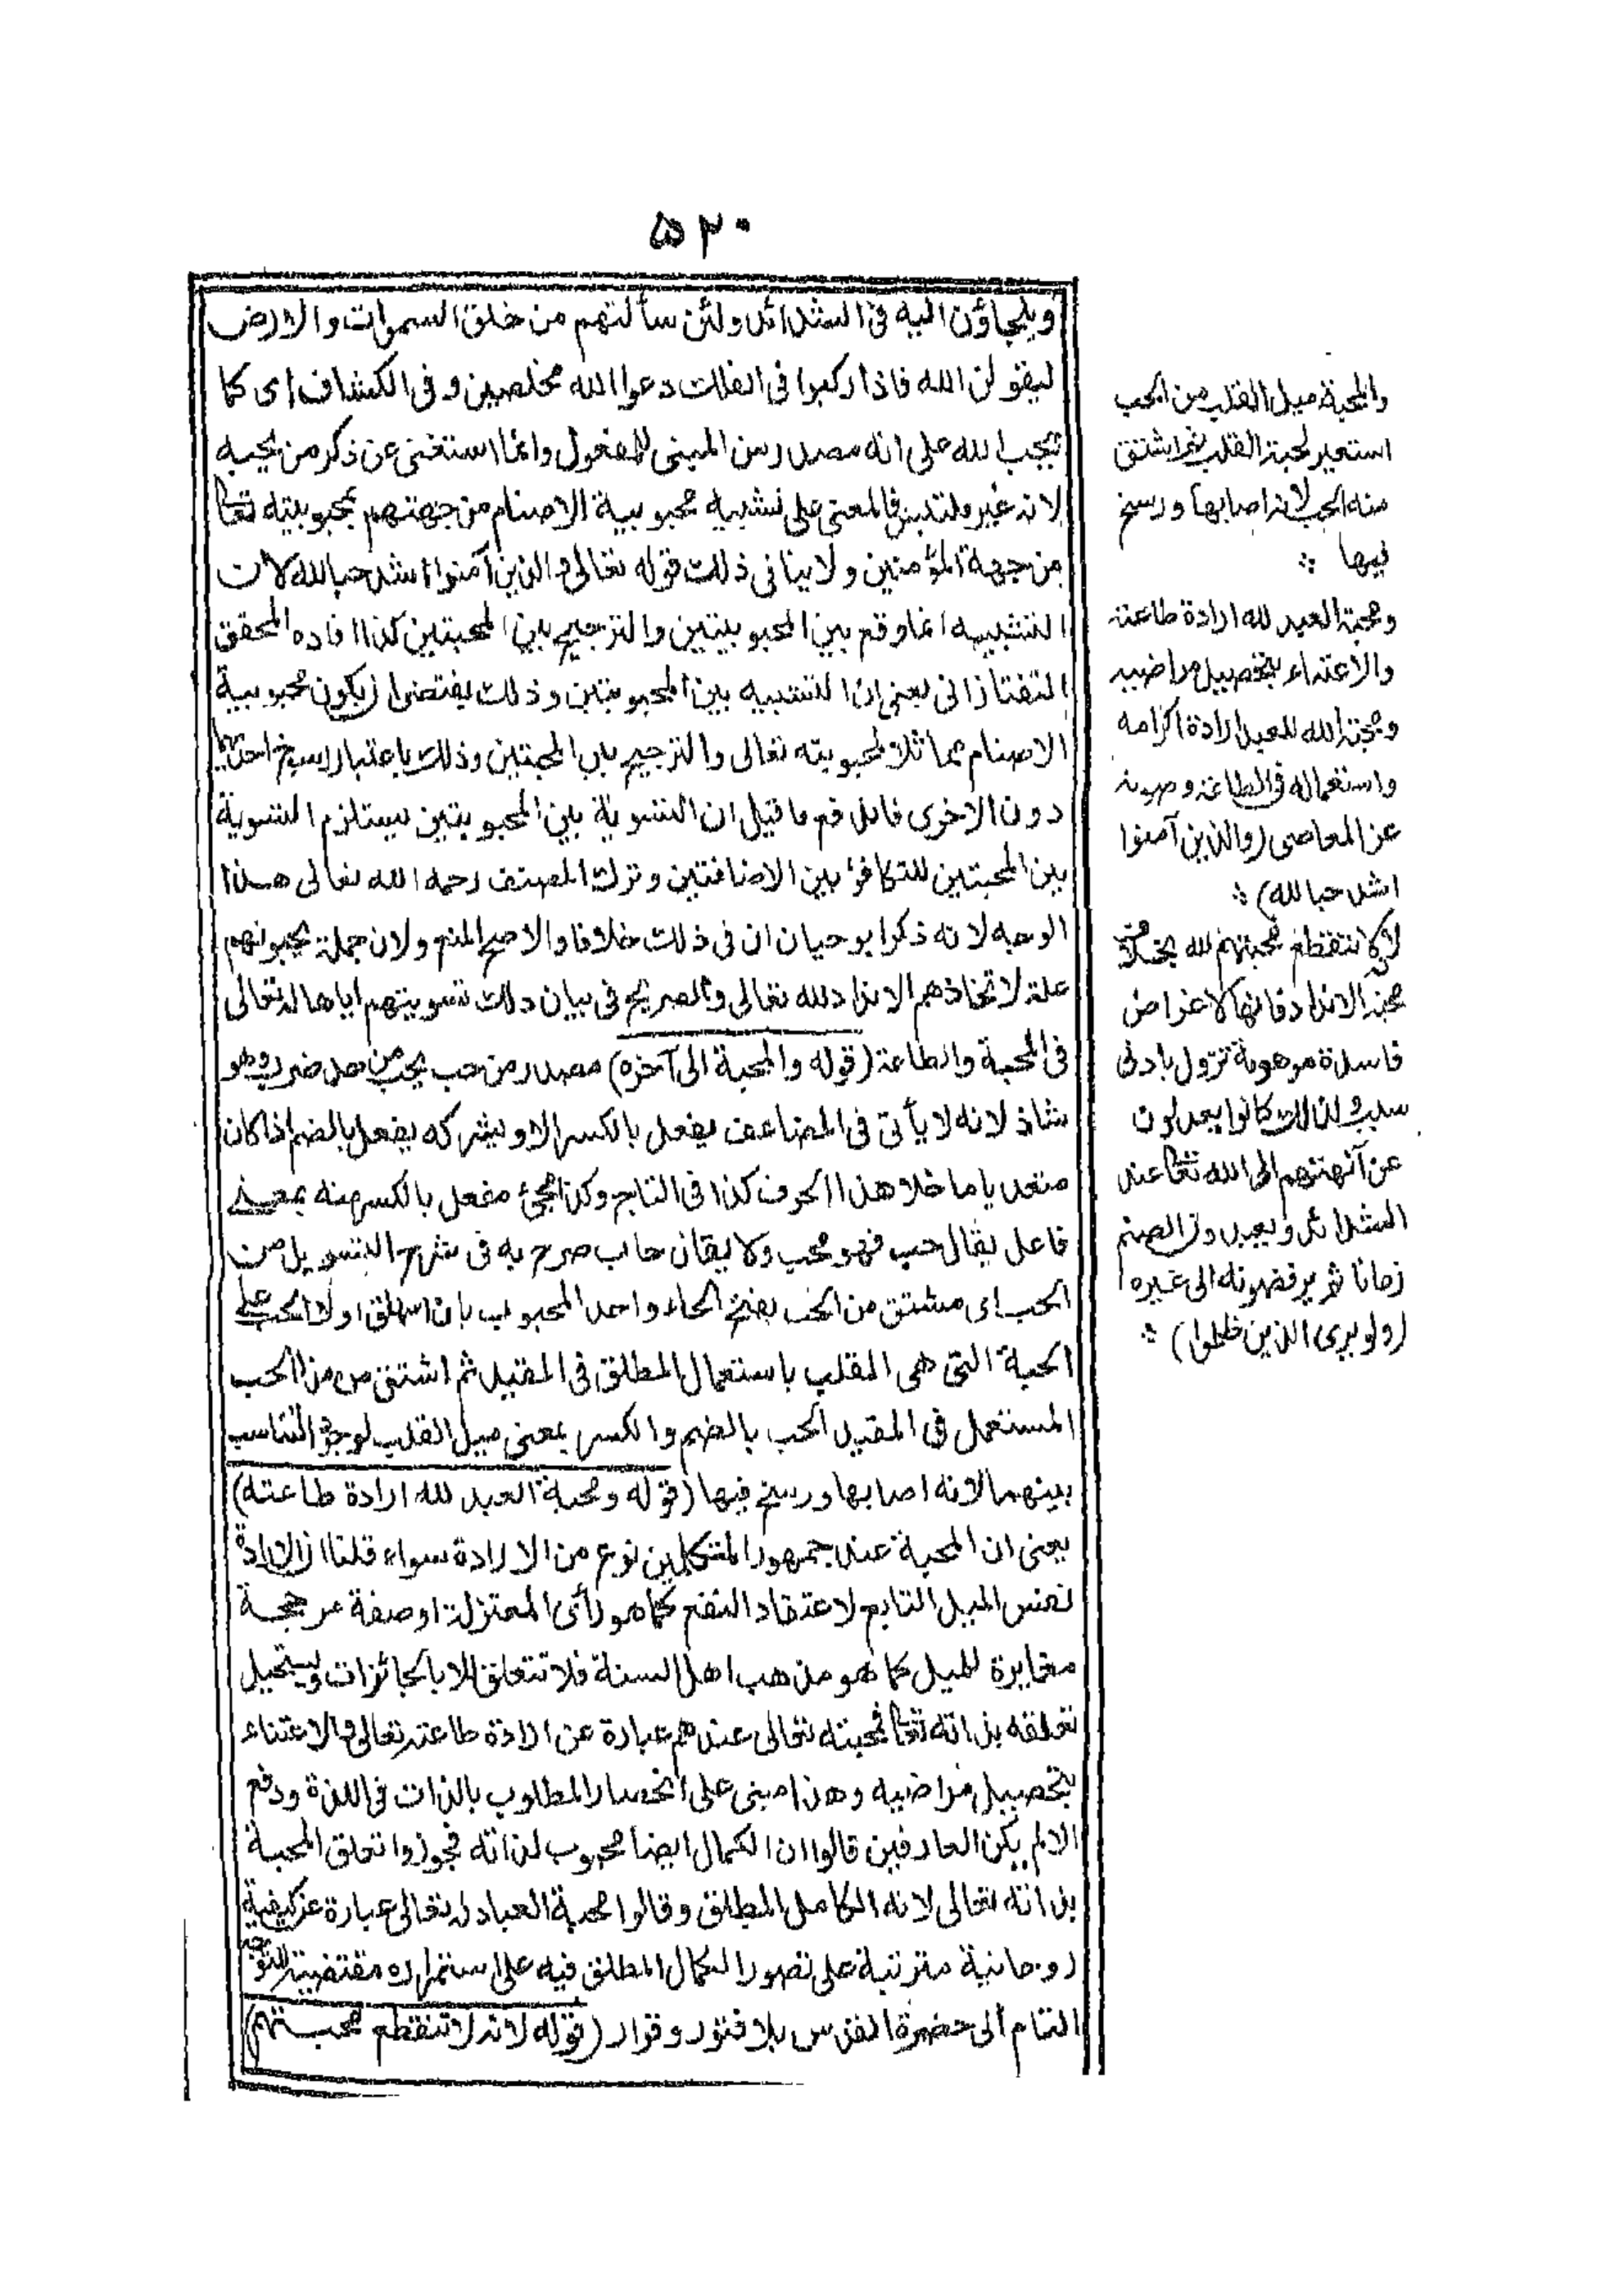 ٥٢٠
ويلجاؤن اليه فى الشدائد ولئن سألتهم من خلق السموات والارض
ليقولن الله فاذا ركبوا فى الفلك دعوا الله مخلصين وفى الكشاف اى كما
يحب الله على انه مصدر من المبنى للمفعول وانما استغنى عن ذكر من يحبه
لانه غير ملتبس فالمعنى على تشبيه محبوبية الاصنام من جهتهم بمحبوبيته تعا
من جهة المؤمنين ولا ينافى ذلك قوله تعالى والذين آمنوا اشد حبا لله لان
التشبيه انما وقع بين المحبوبيتين والترجيح بين المحبتين كذا افاده المحقق
التفتازانى يعنى ان التشبيه بين المحبوبيتين وذلك يقتضى ان يكون محبوبية
الاصنام مماثلا لمحبوبيته تعالى والترجيح بين المحبتين وذلك باعتبار رسوخ احدٰهما
دون الاخرى فاندفع ما قيل ان التسوية بين المحبوبيتين يستلزم التسوية
بين المحبتين للتكافؤ بين الاضافتين وترك المصنف رحمه الله تعالى هذا
الوجه لانه ذكر ابو حيان ان فى ذلك خلافا والاصح المنع ولان جملة يحبونهم
علة لاتخاذهم الانداد لله تعالى والصريح فى بيان ذلك تسويتهم اياها له تعالى
فى المحبة والطاعة (قوله والمحبة الى آخره) مصدر من حب يحب من حد ضرب وهو
شاذ لانه لا يأتى فى المضاعف يفعل بالكسر الا ويشركه يفعل بالضم اذا كان
متعديا ما خلا هذا الحرف كذا فى التاج وكذا مجئ مفعل بالكسر منه بمعنى
فاعل يقال حب فهو محب ولا يقال حاب صرح به فى شرح التسهيل من
الحب اى مشتق من الحب بفتح الحاء واحد المحبوب بان اطلق اولا الحب على
الحبة التى هى القلب باستعمال المطلق فى المقيد ثم اشتق من هذا الحب
المستعمل فى المقيد الحب بالضم والكسر بمعنى ميل القلب لوجود التناسب
بينهما لانه اصابها ورسخ فيها (قوله ومحبة العبد لله ارادة طاعته)
يعنى ان المحبة عند جمهور المتكلمين نوع من الارادة سواء قلنا ان الارادة
نفس الميل التابع لاعتقاد النفع كما هو رأى المعتزلة او صفة مرجحة
مغايرة للميل كما هو مذهب اهل السنة فلا تتعلق الا بالجائزات ويستحيل
تعلقه بذاته تعا فمحبته تعالى عندهم عبارة عن ارادة طاعته تعالى والاعتناء
بتحصيل مراضيه وهذا مبنى على انحصار المطلوب بالذات فى اللذة ودفع
الالم لكن العارفين قالوا ان الكمال ايضا محبوب لذاته فجوزوا تعلق المحبة
بذاته تعالى لانه الكامل المطلق وقالوا محبة العباد له تعالى عبارة عن كيفية
روحانية مترتبة على تصور الكمال المطلق فيه على استمراره مقتضية للتوجه
التام الى حضرة القدس بلا فتور وقرار (قوله لانه لا تنقطع محبتهم)
والمحبة ميل القلب من الحب
استعير لحبة القلب ثم اشتق
منه الحب لانه اصابها ورسخ
فيها
ومحبة العبد لله ارادة طاعته
والاعتناء بتحصيل مراضيه
ومحبة الله للعبد ارادة اكرامه
واستعماله فى الطاعة وصونه
عن المعاصى (والذين آمنوا
اشد حبا لله)
لانه لا تنقطع محبتهم لله بخلاف
محبة الانداد فانها لاغراض
فاسدة موهومة تزول بادنى
سبب ولذلك كانوا يعدلون
عن آلهتهم الى الله تعا عند
الشدائد ويعبدون الصنم
زمانا ثم يرفضونه الى غيره
(ولو يرى الذين ظلموا)